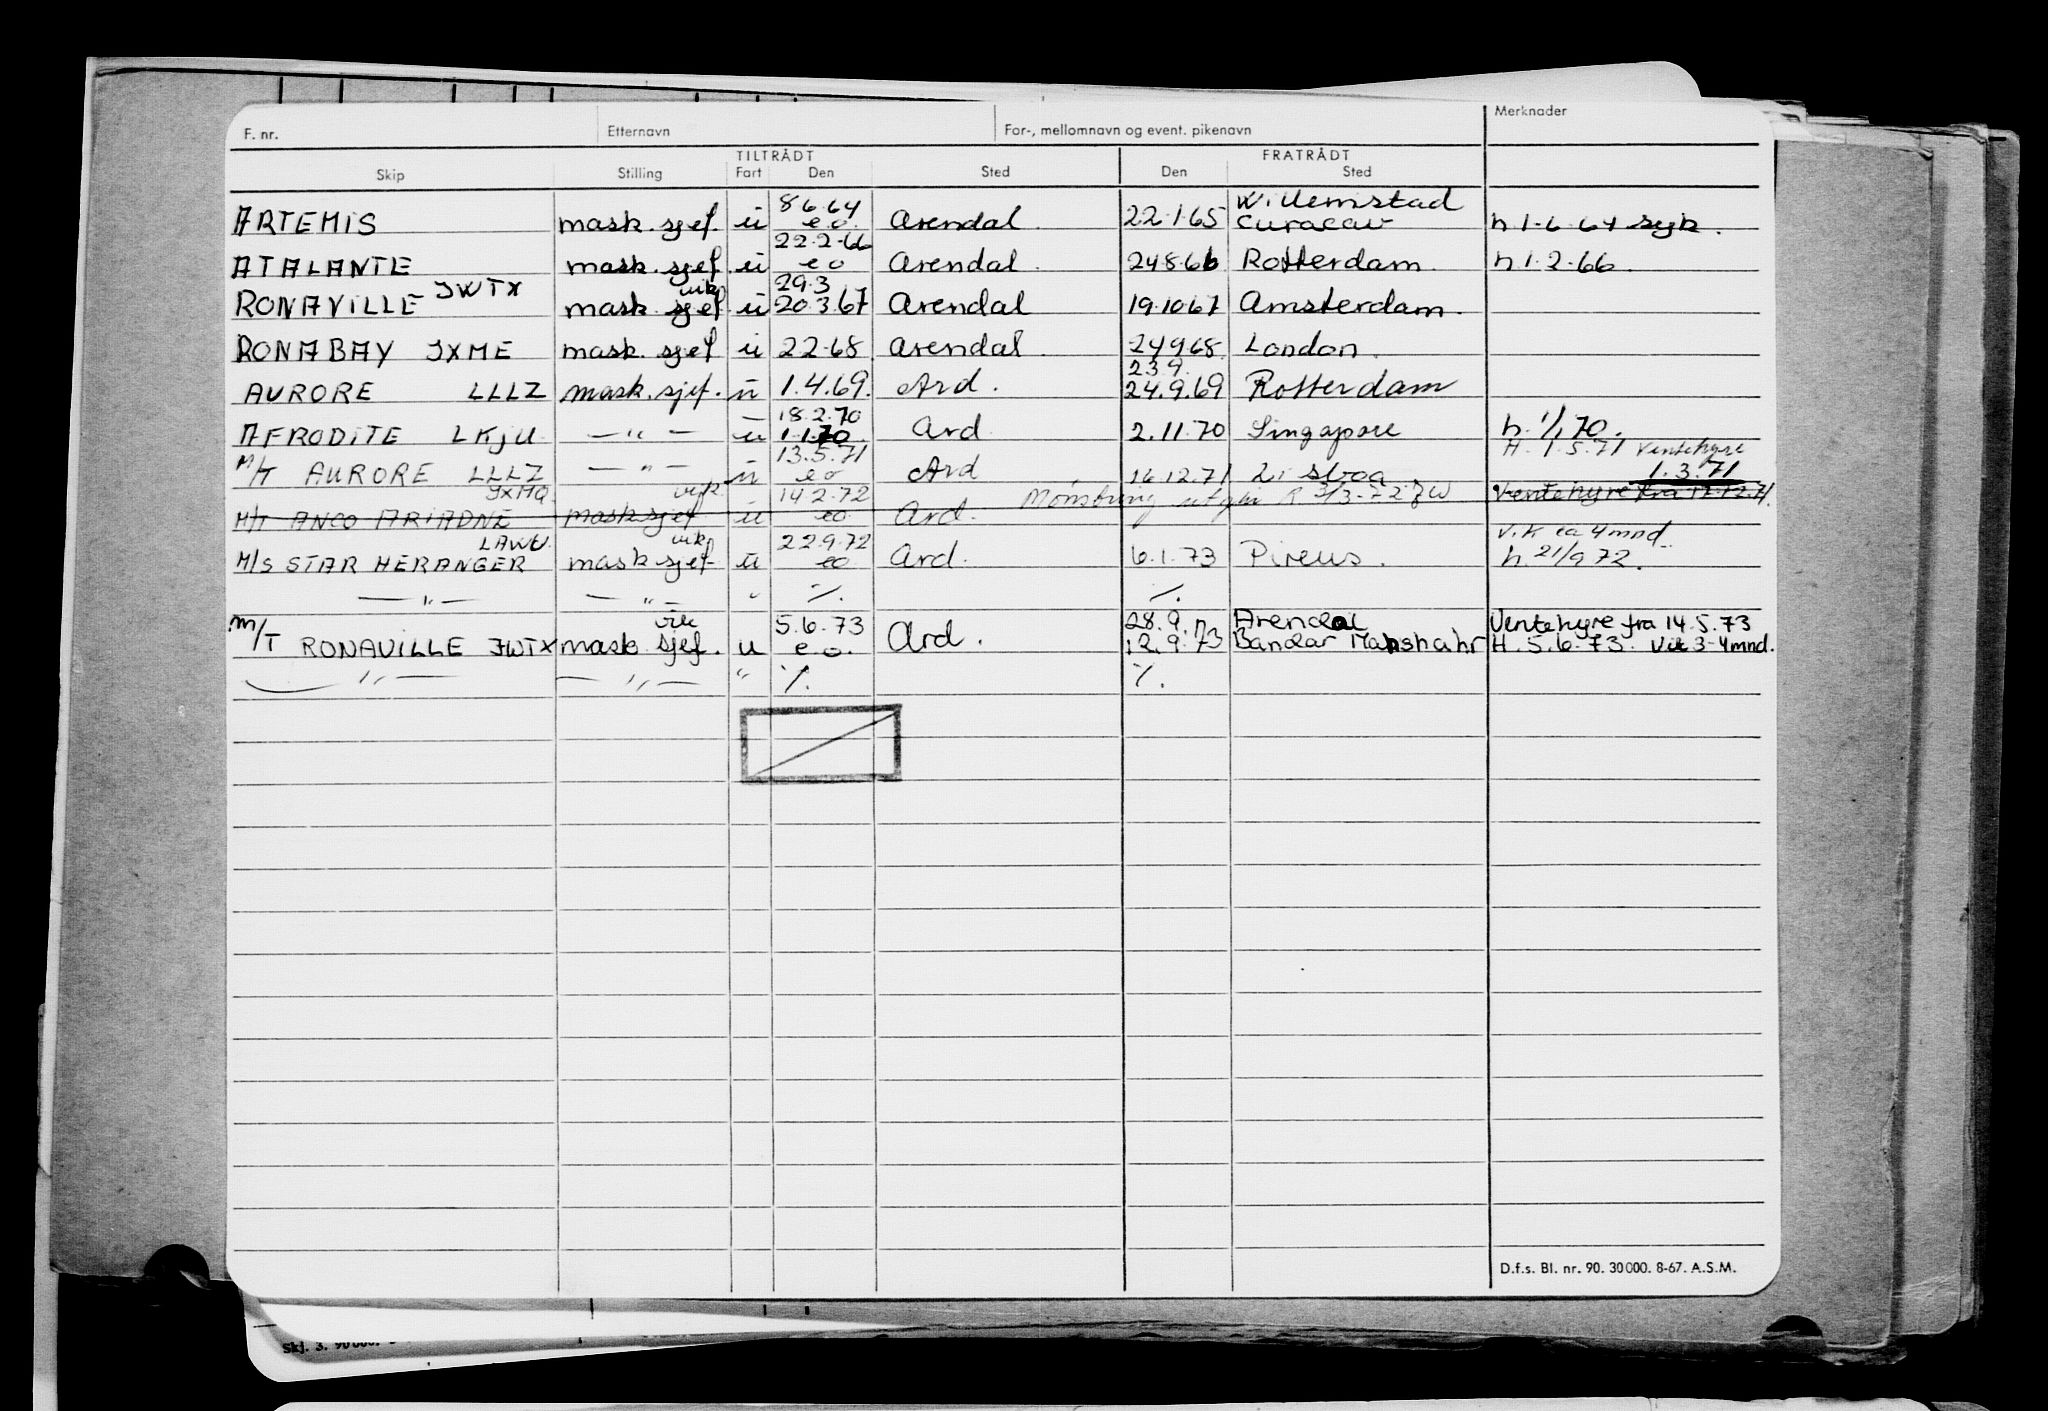 F. nr. Etternavn For-, mellomnavn og event. pikenavn Merknader
TILTRÅDT FRATRÅDT
Skip Stilling Fart Den Sted Den Sted
8.6.64 Willemstad
ARTEMIS mask. sjef. u e.o. Arendal. 22.1.65 Curacau h 1.6.64 syk.
22.2.66
ATALANTE mask. sjef. u e o Arendal. 24.8.66 Rotterdam. h 1.2.66.
JWTX vik 29.3
RONAVILLE mask. sjef. u 20.3.67 Arendal 19.10.67 Amsterdam.
RONABAY JXME mask. sjef u 2.2.68 Arendal 24968 London.
23.9.
AURORE LLLZ mask. sjef. u 1.4.69. Ard. 24.9.69 Rotterdam
18.2.70
AFRODITE LKJU — " — u 1.1.70. Ard 2.11.70 Singapore h. 1/1 70.
13.5.71 H. 1.5.71 Ventehyre
M/T AURORE LLLZ — " — u e o Ard 16.12.71 Lisboa 1.3.71
JXMQ vik. 14.2.72 Mønstring utgår R 3/3-72 Ventehyre fra 17.12.71.
M/T ANCO ARIADNE mask sjef u eo. Ard.
LAWU. vik. 22.9.72 V.K ca 4 mnd.
M/S STAR HERANGER mask sjef u eo. Ard. 6.1.73 Pireus. h. 21/9 72.
— " — — " — " ⁒. ⁒.
vik 5.6.73 28.9. Arendal Ventehyre fra 14.5.73
M/T RONAVILLE JWTX mask sjef. u e.o. Ard. 12.9.73 Bandar Mahshahr H. 5.6.73. Vik 3-4 mnd.
— " — — " — " ⁒. ⁒.
D.f.s. Bl. nr. 90. 30000. 8-67. A.S.M.
Skj. 3. 90000.